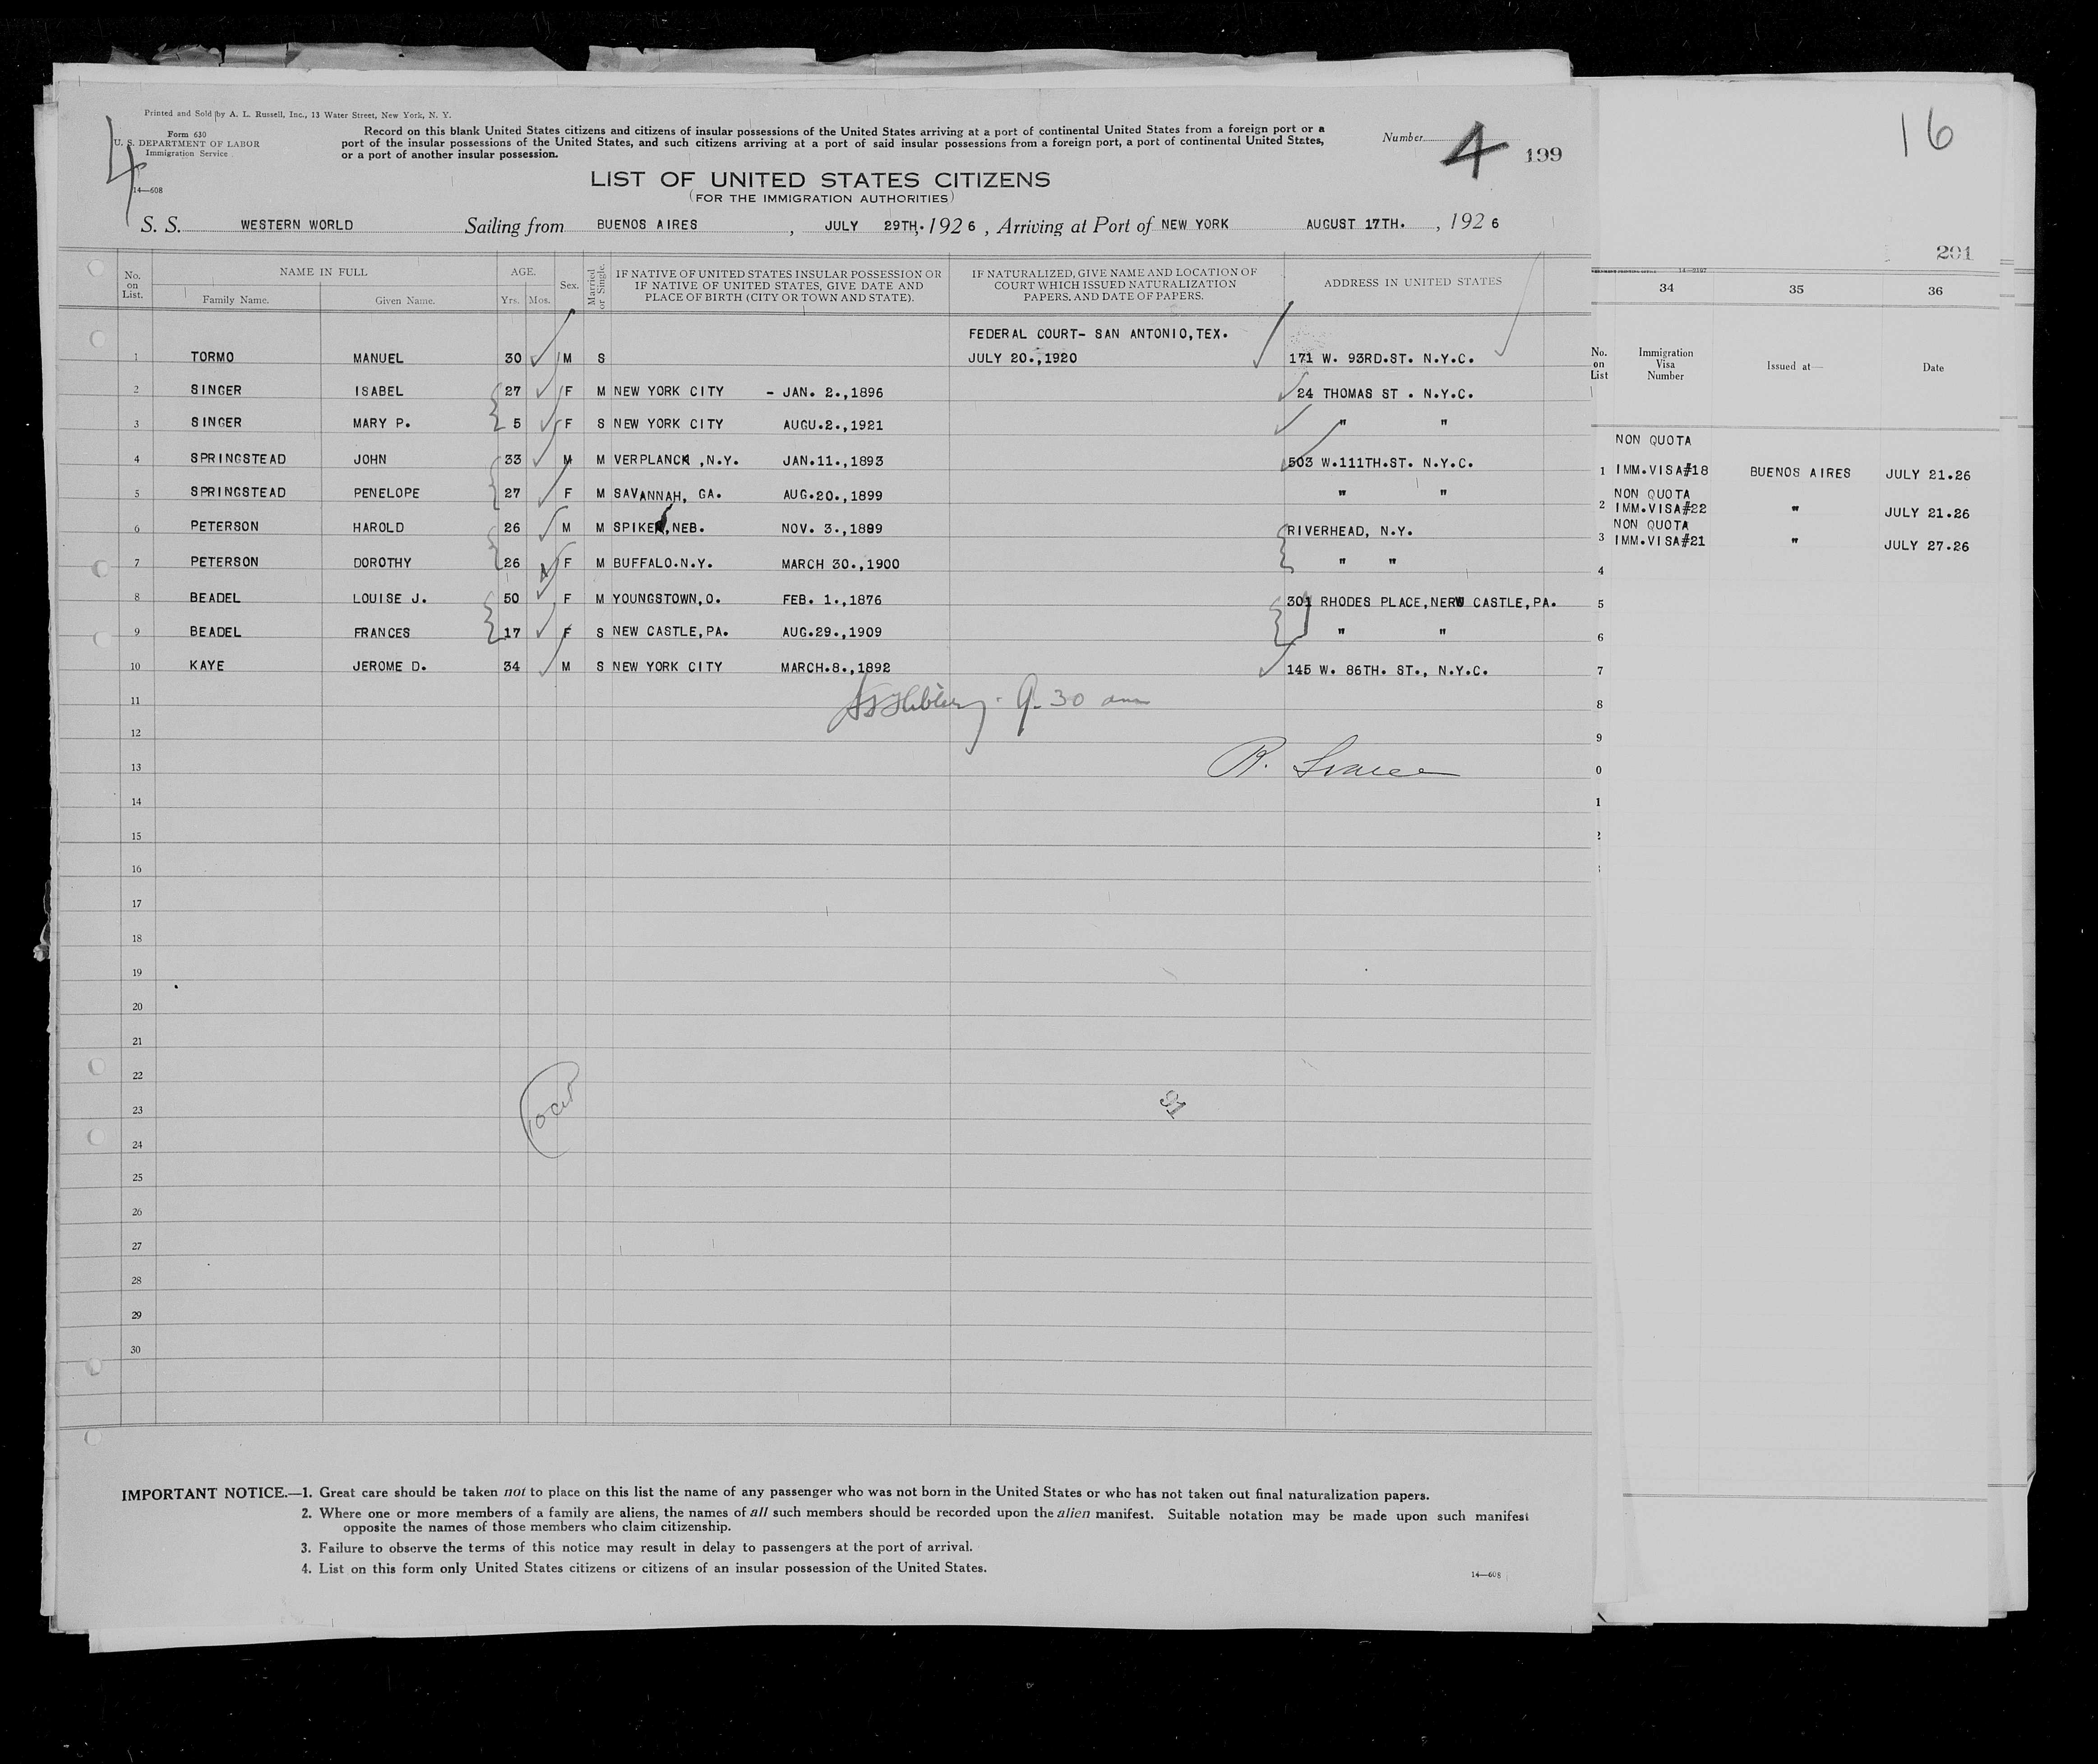 Printed and Sold by A. L. Russell, Inc., 13 Water Street, New York, N. Y.
Form 630
U. S. DEPARTMENT OF LABOR
Immigration Service
14—608
4
Record on this blank United States citizens and citizens of insular possessions of the United States arriving at a port of continental United States from a foreign port or a
port of the insular possessions of the United States, and such citizens arriving at a port of said insular possessions from a foreign port, a port of continental United States,
or a port of another insular possession.
Number 4 199
LIST OF UNITED STATES CITIZENS
(FOR THE IMMIGRATION AUTHORITIES)
S. S. WESTERN WORLD Sailing from BUENOS AIRES, JULY 29TH. 1926, Arriving at Port of NEW YORK AUGUST 17TH., 1926
No. on List. NAME IN FULL Family Name. Given Name. AGE. Yrs. Mos. Sex. Married or Single. IF NATIVE OF UNITED STATES INSULAR POSSESSION OR IF NATIVE OF UNITED STATES, GIVE DATE AND PLACE OF BIRTH (CITY OR TOWN AND STATE). IF NATURALIZED, GIVE NAME AND LOCATION OF COURT WHICH ISSUED NATURALIZATION PAPERS, AND DATE OF PAPERS. ADDRESS IN UNITED STATES
FEDERAL COURT- SAN ANTONIO,TEX.
1 TORMO MANUEL 30 M S JULY 20.,1920 171 W. 93RD.ST. N.Y.C.
2 SINGER ISABEL 27 F M NEW YORK CITY - JAN. 2.,1896 24 THOMAS ST . N.Y.C.
3 SINGER MARY P. 5 F S NEW YORK CITY AUGU.2.,1921 " "
4 SPRINGSTEAD JOHN 33 M M VERPLANCK ,N.Y. JAN.11.,1893 503 W.111TH.ST. N.Y.C.
5 SPRINGSTEAD PENELOPE 27 F M SAVANNAH, GA. AUG.20.,1899 " "
6 PETERSON HAROLD 26 M M SPIKER,NEB. NOV. 3.,1899 RIVERHEAD, N.Y.
7 PETERSON DOROTHY 26 F M BUFFALO.N.Y. MARCH 30.,1900 " "
8 BEADEL LOUISE J. 50 F M YOUNGSTOWN,O. FEB. 1.,1876 301 RHODES PLACE,NERW CASTLE,PA.
9 BEADEL FRANCES 17 F S NEW CASTLE,PA. AUG.29.,1909 " "
10 KAYE JEROME D. 34 M S NEW YORK CITY MARCH.8.,1892 145 W. 86TH. ST., N.Y.C.
11 9-30 am
12
13 R.
14
15
16
17
18
19
20
21
22
23 91
24
25
26
27
28
29
30
IMPORTANT NOTICE.—1. Great care should be taken not to place on this list the name of any passenger who was not born in the United States or who has not taken out final naturalization papers.
2. Where one or more members of a family are aliens, the names of all such members should be recorded upon the alien manifest. Suitable notation may be made upon such manifest
opposite the names of those members who claim citizenship.
3. Failure to observe the terms of this notice may result in delay to passengers at the port of arrival.
4. List on this form only United States citizens or citizens of an insular possession of the United States.
14—608
16
201
34 35 36
No. on List Immigration Visa Number Issued at— Date
NON QUOTA
1 IMM.VISA#18 BUENOS AIRES JULY 21.26
NON QUOTA
2 IMM.VISA#22 " JULY 21.26
NON QUOTA
3 IMM.VISA#21 " JULY 27.26
4
5
6
7
8
9
0
1
2